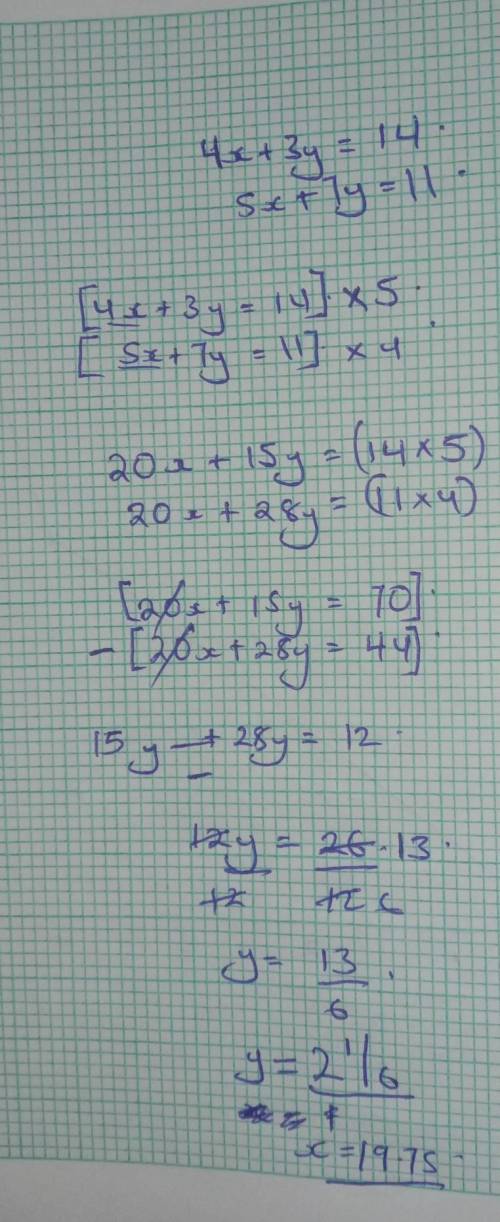 4x + 3y = 14
5x + 7y = 11
[4x + 3y = 14] × 5
[5x + 7y = 11] × 4
20x + 15y = (14 × 5)
20x + 28y = (11 × 4)
[20x + 15y = 70]
- [20x + 28y = 44]
15y - + 28y = 12
-
12y = 26 . 13
12 12 6
y = 13
6
y = 2 1/6
x = 19.75